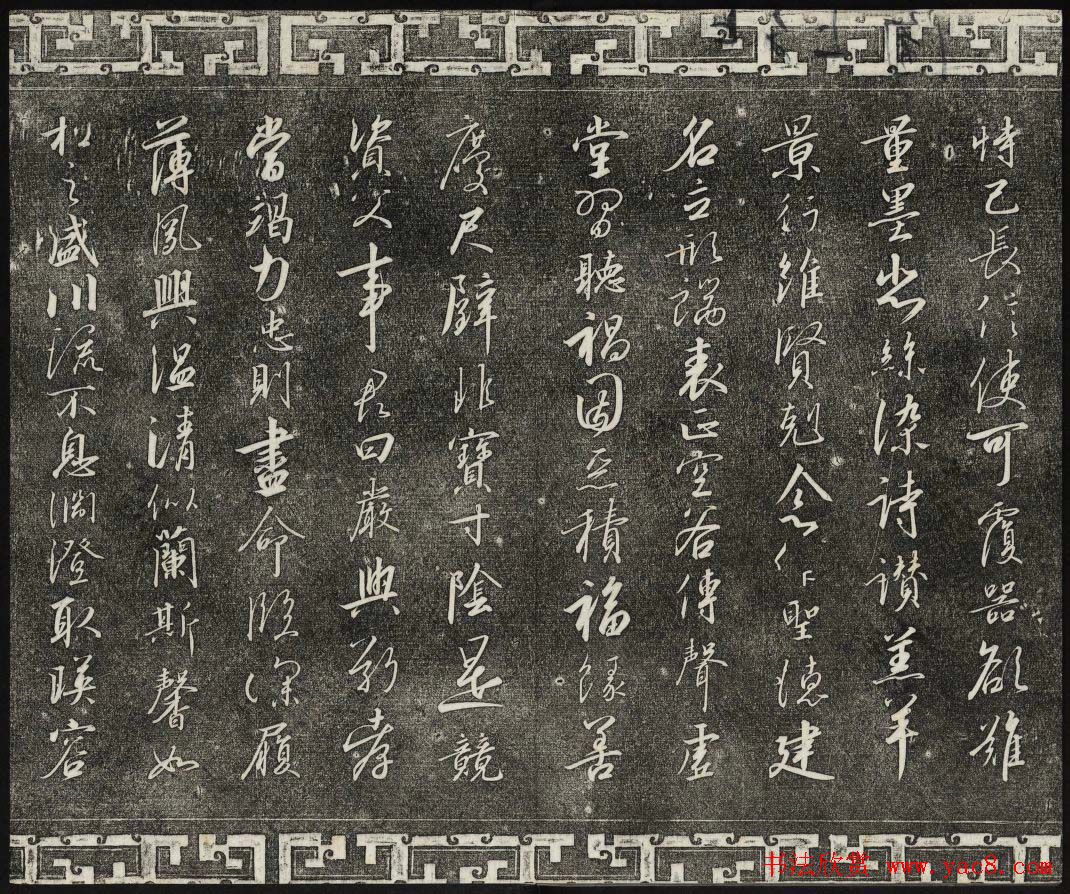 恃己長信使可覆器欲難
量墨悲絲染詩讚羔羊
景行維賢剋念作聖德建
名立形端表正空谷傳聲虛
堂習聽禍因惡積福緣善
慶尺璧非寶寸陰是競
資父事君曰嚴與敬孝
當竭力忠則盡命臨深履
薄夙興溫凊似蘭斯馨如
松之盛川流不息淵澄取暎容
书法欣赏 www.yac8.com